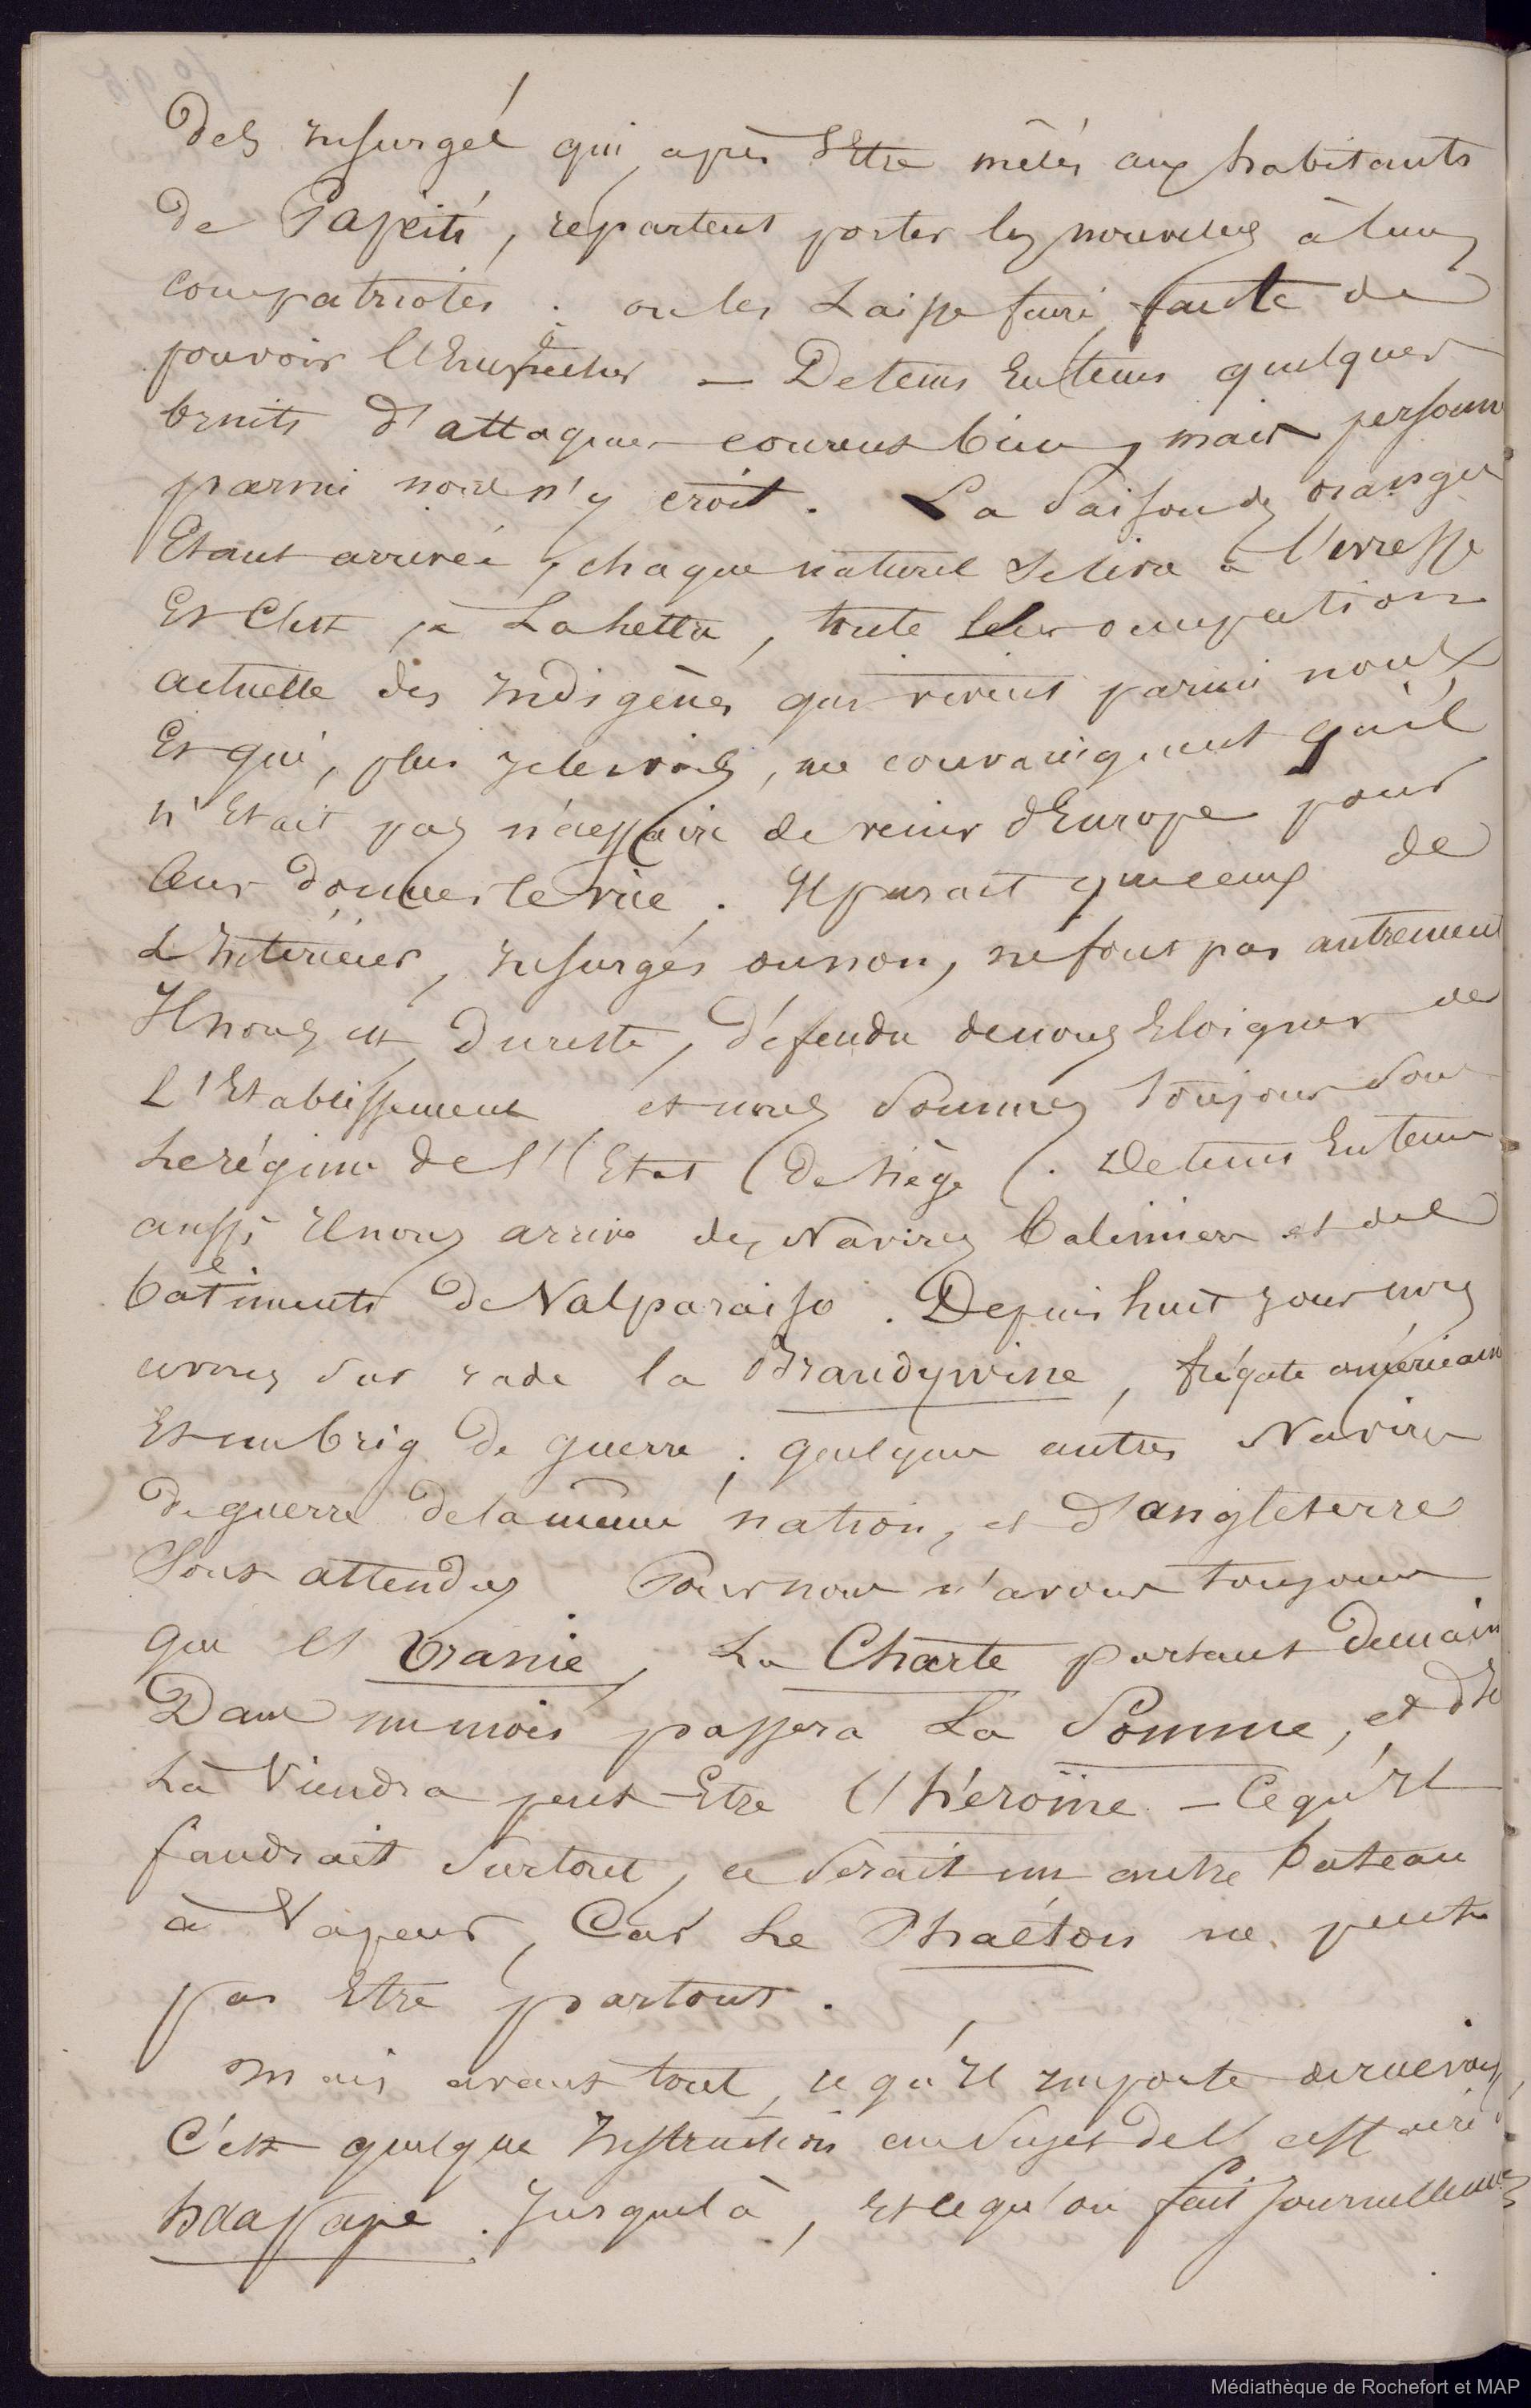 Des Insurgés qui, après s'Etre mêlés aux habitants
De Papeiti, repartent porter les nouvelles à leurs
compatriotes. on les Laisse faire, faute de
pouvoir l'Empêcher — De tems En tems quelques
bruits d'attaques courent bien, mais personne
parmi nous n'y croit. La Saison des oranges
Etant arrivée, chaque naturel se livre à l'ivresse
Et C'est là, toute leur occupation
actuelle des Indigènes qui vivent parmi nous
Et qui, plus je les vois, me convainquent qu'il
n'Etait pas nécessaire de venir d'Europe pour
leur donner le vice. Il parait que ceux de
L'Intérieur, Insurgés ou non, ne font pas autrement
Il nous est, Du reste, Défendu de nous Eloigner de
L'Etablissement et nous Sommes Toujours Sous
Le régime de l'Etat De siège. De tems En tems
aussi Il nous arrive des Navires baleiniers et des
bâtiments De Valparaiso. Depuis huit jours nous
avons sur rade la Brandywine, frégate américaine
Et un brig De guerre. quelques autres Navires
De guerre De la même nation, et D'angleterre
Sont attendus Pour nous n'avons toujours
que l'Uranie, La Charte partant Demain
Dans un mois passera La Somme, et de
Là Viendra peut-Etre l'héroïne. — Ce qu'Il
faudrait Surtout, ce Serait un autre bateau
à Vapeur, Car Le Phaéton ne peut
pas Etre partout.
Mais avant tout, ce qu'Il importe de recevoir,
C'est quelque Instruction au Sujet De l'affaire
haapape. Jusque là, Et ce qu'on fait Journellement